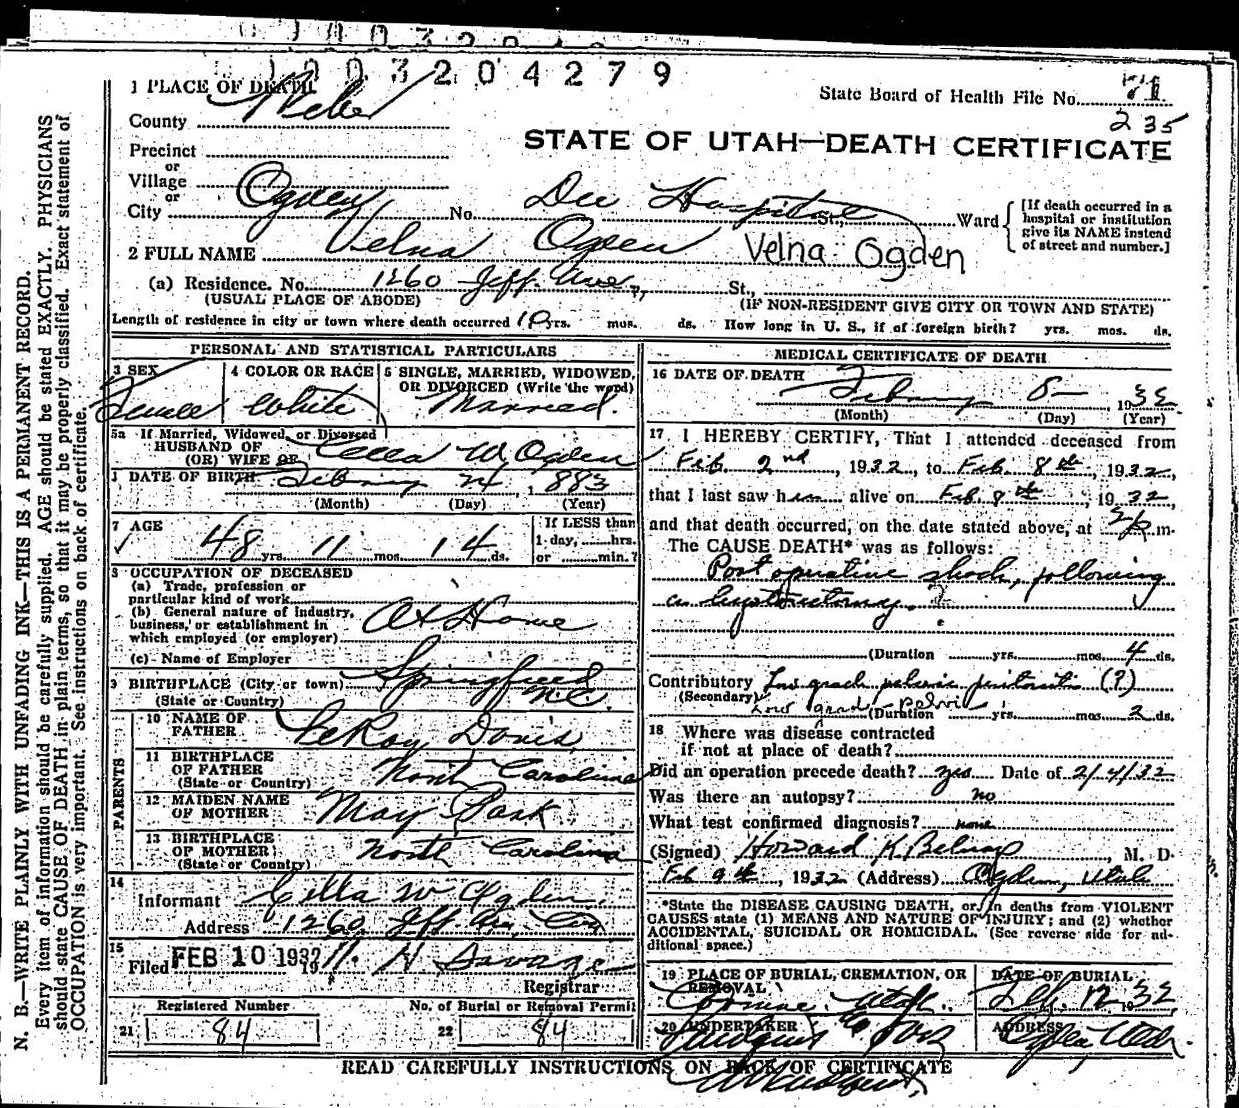 1003204279
1 PLACE OF DEATH
State Board of Health File No. 71
County Weber
235
STATE OF UTAH—DEATH CERTIFICATE
Precinct
or
Village
or
City Ogden No. Dee Hospital St., Ward
[If death occurred in a
hospital or institution
give its NAME instead
of street and number.]
2 FULL NAME Velna Ogden Velna Ogden
(a) Residence. No. 1260 Jeff. Ave., St.,
(USUAL PLACE OF ABODE) (IF NON-RESIDENT GIVE CITY OR TOWN AND STATE)
Length of residence in city or town where death occurred 10 yrs. mos. ds. How long in U. S., if of foreign birth? yrs. mos. ds.
PERSONAL AND STATISTICAL PARTICULARS
3 SEX
Female
4 COLOR OR RACE
White
5 SINGLE, MARRIED, WIDOWED,
OR DIVORCED (Write the word)
Married.
5a If Married, Widowed, or Divorced
HUSBAND OF
(OR) WIFE OF W. Ogden
DATE OF BIRTH 24, 1883
(Month) (Day) (Year)
7 AGE
48 yrs. 11 mos. 14 ds.
If LESS than
1 day, hrs.
or min.?
OCCUPATION OF DECEASED
(a) Trade, profession or
particular kind of work
(b) General nature of industry,
business, or establishment in
which employed (or employer)
At Home
(c) Name of Employer
BIRTHPLACE (City or town) Springfield
(State or Country) N.C.
PARENTS
10 NAME OF
FATHER LeRoy Davis
11 BIRTHPLACE
OF FATHER North Carolina
(State or Country)
12 MAIDEN NAME
OF MOTHER May Park
13 BIRTHPLACE
OF MOTHER North Carolina
(State or Country)
14
Informant W Ogden
Address 1260 Jeff. Ave.
15
Filed FEB 10 1932 Savage
Registrar
Registered Number No. of Burial or Removal Permit
21 84 22 84
MEDICAL CERTIFICATE OF DEATH
16 DATE OF DEATH
8 1932
(Month) (Day) (Year)
17 I HEREBY CERTIFY, That I attended deceased from
Feb. 2nd, 1932, to Feb. 8th, 1932,
that I last saw him alive on Feb. 8th, 1932
and that death occurred, on the date stated above, at m.
The CAUSE DEATH* was as follows:
Post operative shock, following
a hysterectomy.
(Duration yrs. mos. 4 ds.
Contributory Low grade pelvic peritonitis (?)
(Secondary) Low grade Pelvic
(Duration yrs. mos. 2 ds.
18 Where was disease contracted
if not at place of death?
Did an operation precede death? yes Date of 2/4/32
Was there an autopsy? no
What test confirmed diagnosis? none
(Signed) Howard K. Belnap, M. D.
Feb 9th, 1932 (Address) Ogden, Utah
*State the DISEASE CAUSING DEATH, or, in deaths from VIOLENT
CAUSES state (1) MEANS AND NATURE OF INJURY; and (2) whether
ACCIDENTAL, SUICIDAL OR HOMICIDAL. (See reverse side for ad-
ditional space.)
19 PLACE OF BURIAL, CREMATION, OR
REMOVAL
Corinne Utah.
DATE OF BURIAL
Feb. 12 1932
20 UNDERTAKER
Lindquist & Sons
ADDRESS
Ogden, Utah.
READ CAREFULLY INSTRUCTIONS ON BACK OF CERTIFICATE
N. B.—WRITE PLAINLY WITH UNFADING INK—THIS IS A PERMANENT RECORD.
Every item of information should be carefully supplied. AGE should be stated EXACTLY. PHYSICIANS
should state CAUSE OF DEATH in plain terms, so that it may be properly classified. Exact statement of
OCCUPATION is very important. See instructions on back of certificate.